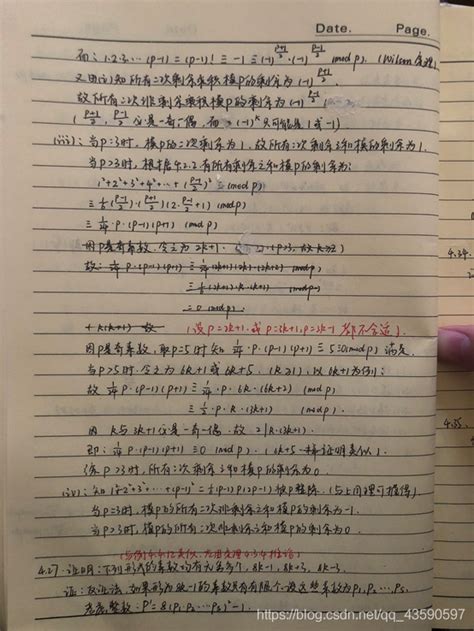 Date. Page.
而: 1·2·3·…·(p-1) = (p-1)! ≡ -1 ≡ (-1)^{\frac{p+1}{2}} · (-1)^{\frac{p-1}{2}} (mod p). (Wilson定理)
又由(i)知所有二次剩余乘积模p的剩余为 (-1)^{\frac{p+1}{2}}
故所有二次非剩余乘积模p的剩余为 (-1)^{\frac{p-1}{2}}
必是一奇一偶, 只可能是1或-1)
(iii): 当p=3时, 模p的二次剩余为1, 故所有二次剩余之和模p的剩余为1.
当p>3时, 根据4.2.2有所有剩余之和模p的剩余为:
1²+2²+3²+4²+…+(\frac{p-1}{2})² ≡ (mod p)
≡ \frac{1}{6}(\frac{p-1}{2})·(\frac{p+1}{2})(2·\frac{p-1}{2}+1) (mod p)
≡ \frac{1}{24}·p·(p-1)(p+1) (mod p)
因p是奇素数, 令之为2k+1,
故: \frac{1}{24}·p·(p-1)(p+1) (mod p)
≡ 0 (mod p).
(设p=2k+1, 或p=3k+1, p=3k-1 都不合适)
因p是奇素数, 取p=5时知 \frac{1}{24}·p·(p-1)(p+1) ≡ 5≡0(mod p) 满足.
当p>5时, 令之为6k+1或6k+5, (k≥1), 以6k+1为例:
故 \frac{1}{24}·p·(p-1)(p+1) ≡ \frac{1}{24}·p·6k·(6k+2) (mod p)
≡ \frac{1}{2}·p·k·(3k+1) (mod p)
因 k与3k+1必是一奇一偶, 故 2|k(3k+1).
即: \frac{1}{24}·p·(p-1)(p+1) ≡ 0 (mod p). (6k+5一样证明类似)
综p>3时, 所有二次剩余之和模p的剩余为0.
(iv): 知 1²+2²+3²+…+(p-1)² = \frac{1}{6}(p-1)p(2p-1) 被p整除. (与上同理可推得)
当p=3时, 模p的所有二次非剩余之和模p的剩余为-1.
当p>3时, 模p的所有二次非剩余之和模p的剩余为0.
4.27. 证明: 下列形式的素数均有无穷多个. 8k-1, 8k+3, 8k-3.
证: 反证法, 如果形为8k-1的素数只有有限个, 设这些素数为p₁, p₂, … pₛ,
考虑整数: P = 8(p₁p₂…pₛ)²-1.
4.34.
4.35.
https://blog.csdn.net/qq_43590597